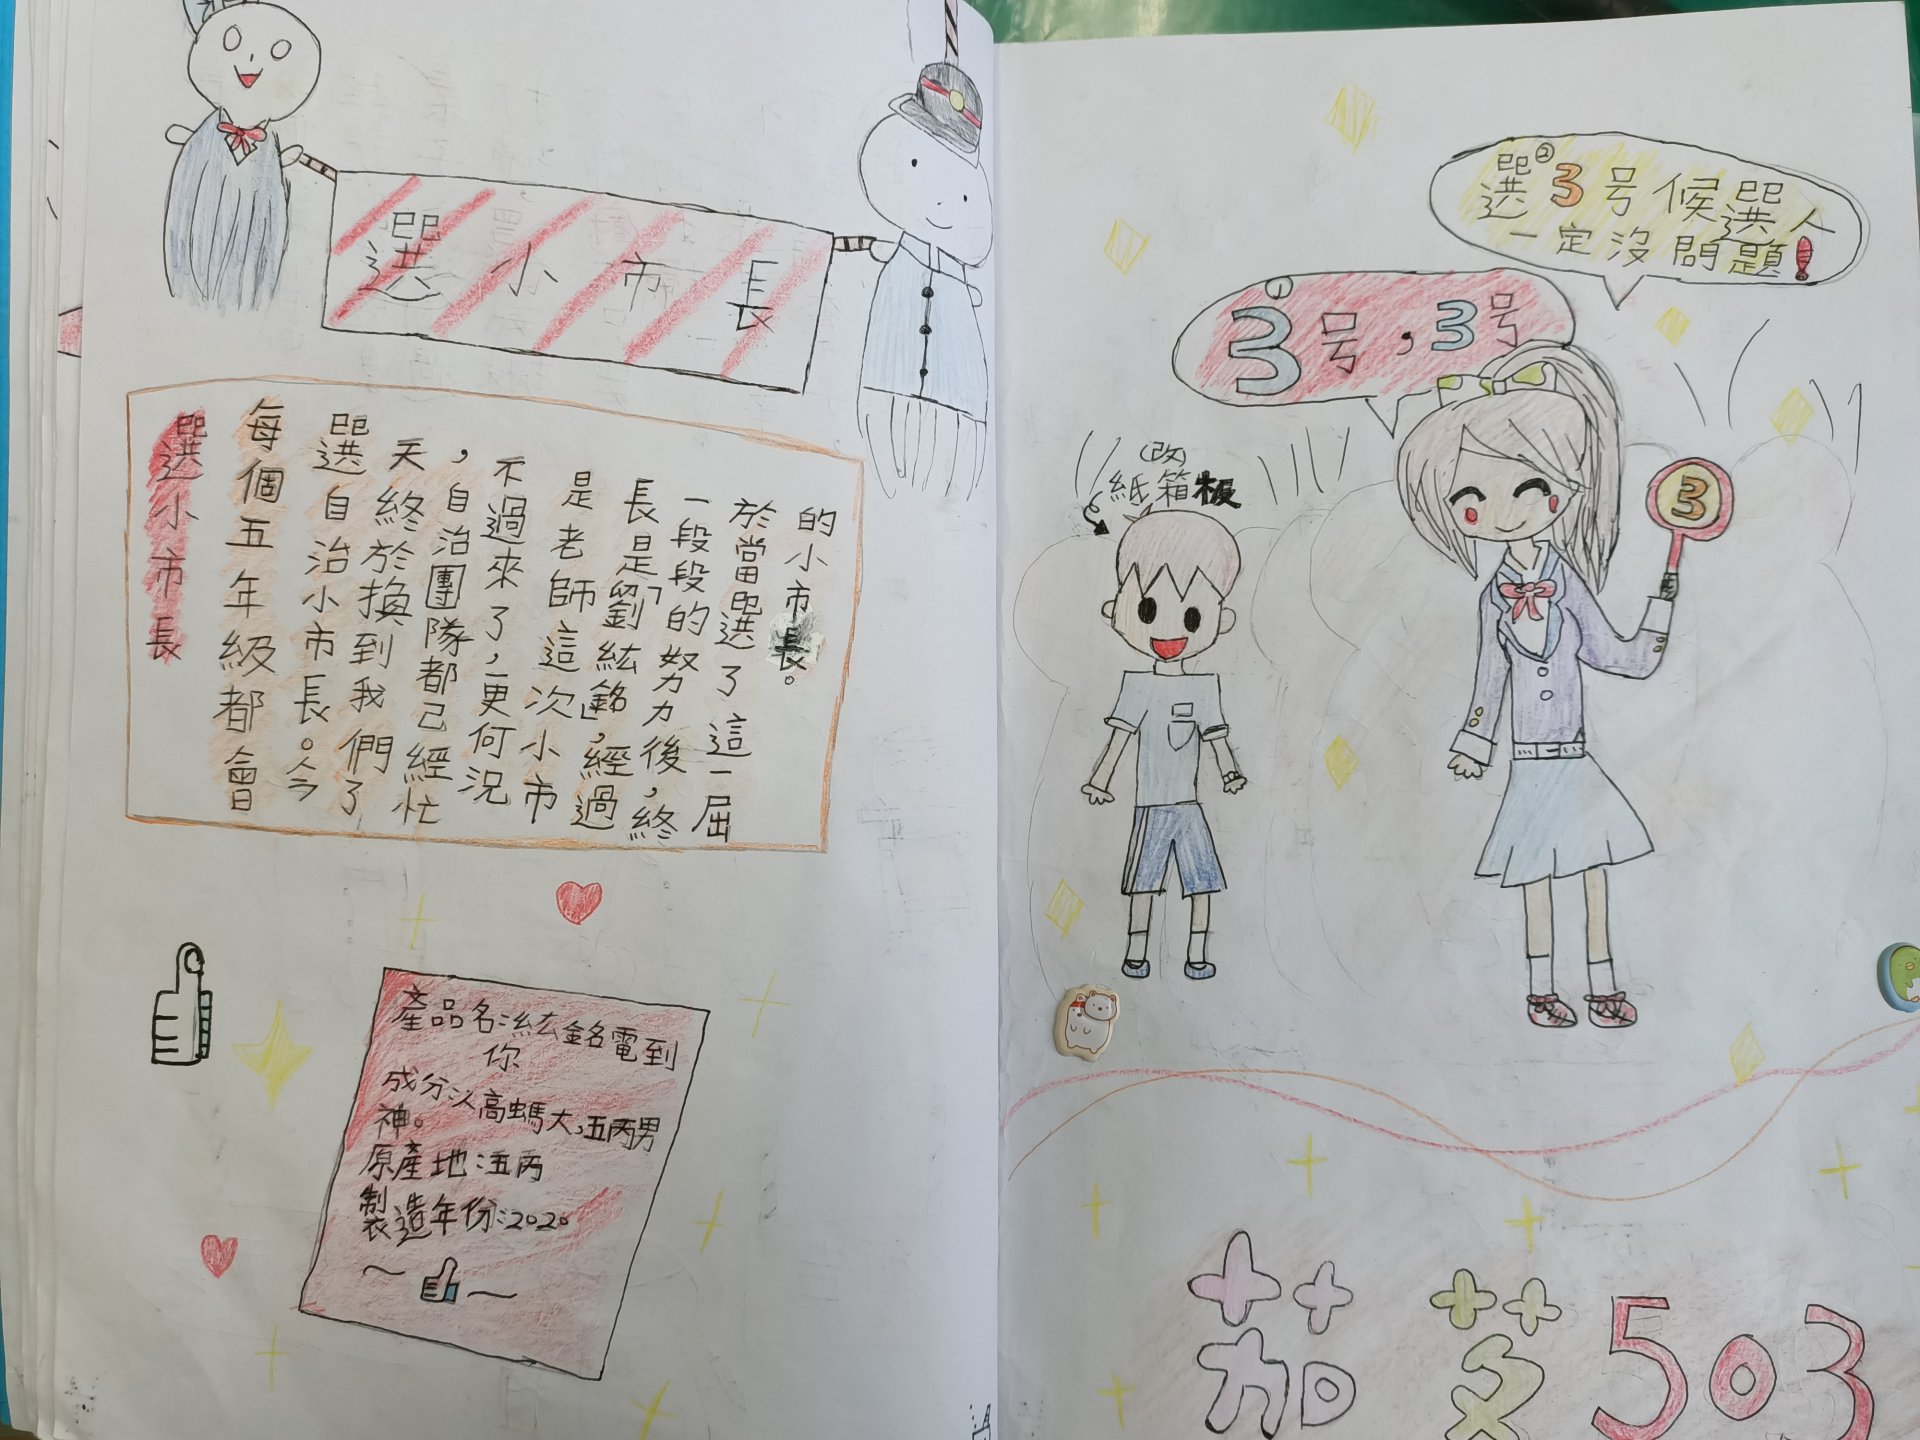 選小市長
選小市長
每個五年級都會
選自治小市長。今
天終於換到我們了
，自治團隊都己經忙
不過來了，更何況
是老師這次小市
長是「劉紘銘」，經過
一段段的努力後，終
於當選了這一屆
的小市長。
產品名:紘銘電到
你
成分:人高螞大,五丙男
神。
原產地:五丙
製造年份:2020
①
3号,3号
②
選3号候選人
一定沒問題!
(改)
紙箱板
3
茄苳503